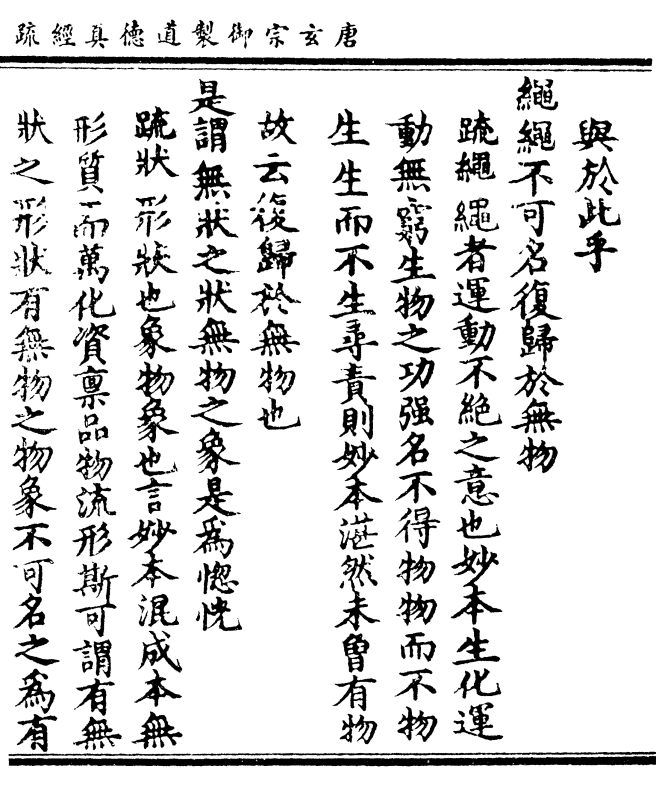 唐玄宗御製道德真經疏
與於此乎
繩繩不可名復歸於無物
疏繩繩者運動不絶之意也妙本生化運
動無窮生物之功强名不得物物而不物
生生而不生尋責則妙本湛然未曾有物
故云復歸於無物也
是謂無狀之狀無物之象是爲惚恍
疏狀形狀也象物象也言妙本混成本無
形質而萬化資禀品物流形斯可謂有無
狀之形狀有無物之物象不可名之爲有